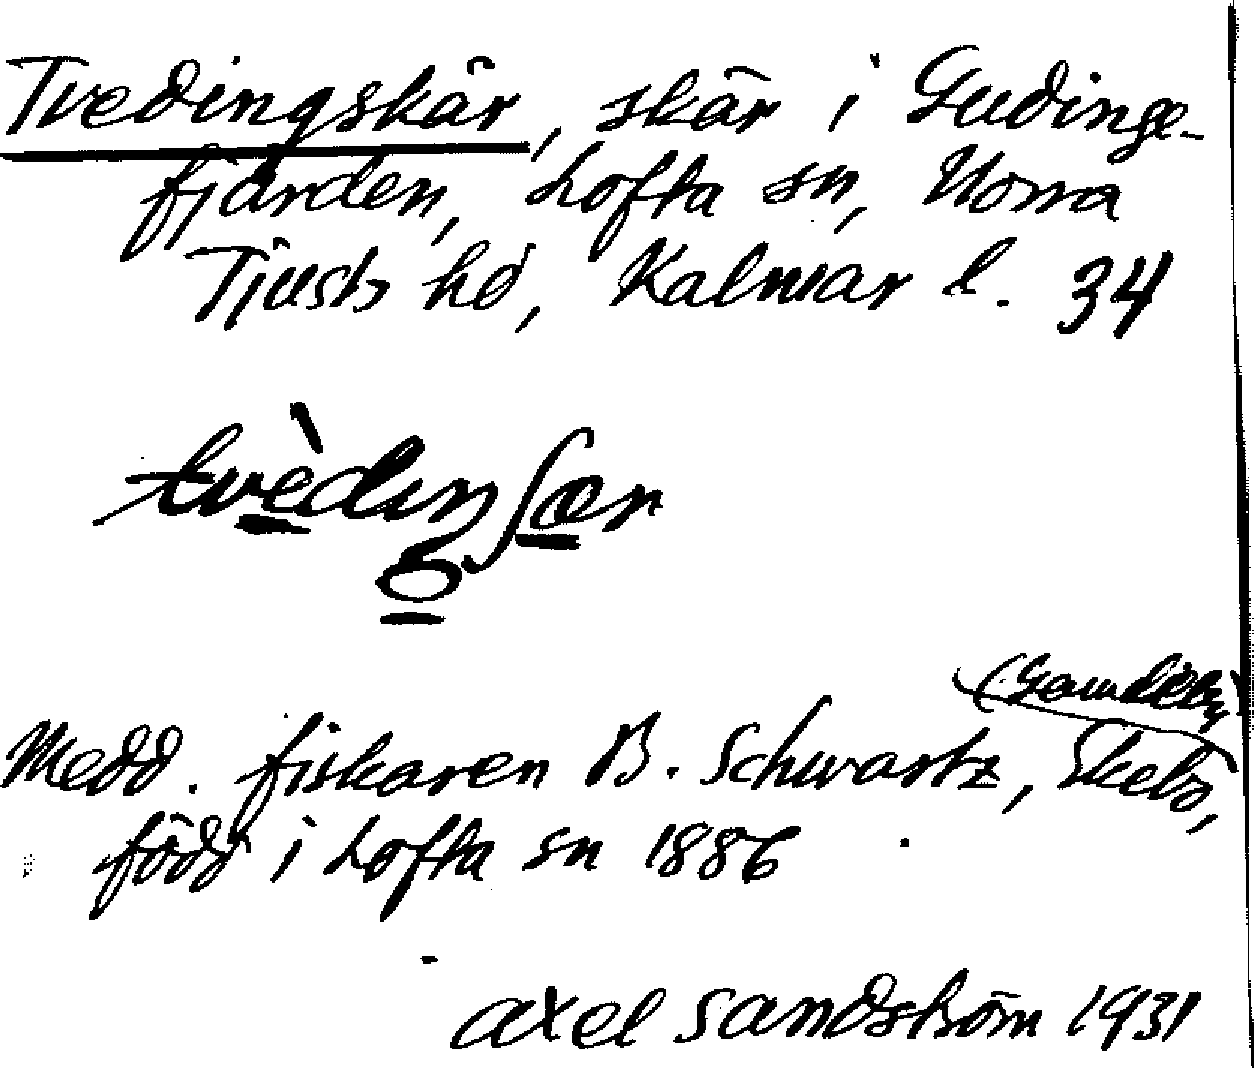 Tvedingskär, skär i Gudinge-
fjärden, Lofta sn, Norra
Tjusts hd, Kalmar l. 34
Medd. fiskaren B. Schwartz,
född i Lofta sn 1886
Axel Sandström 1931